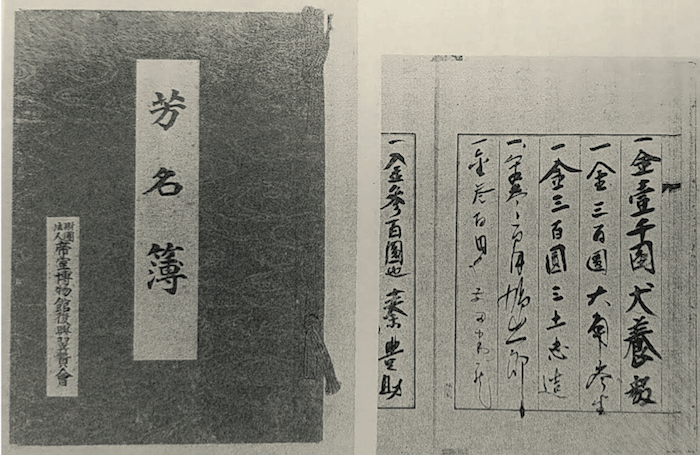 芳名簿
財團法人帝室博物館復興翼賛會
一金壹千圓犬養毅
一金三百圓大角岑生
一金三百圓三土忠造
一金 鳩山一郎
一金參百圓也秦豊助